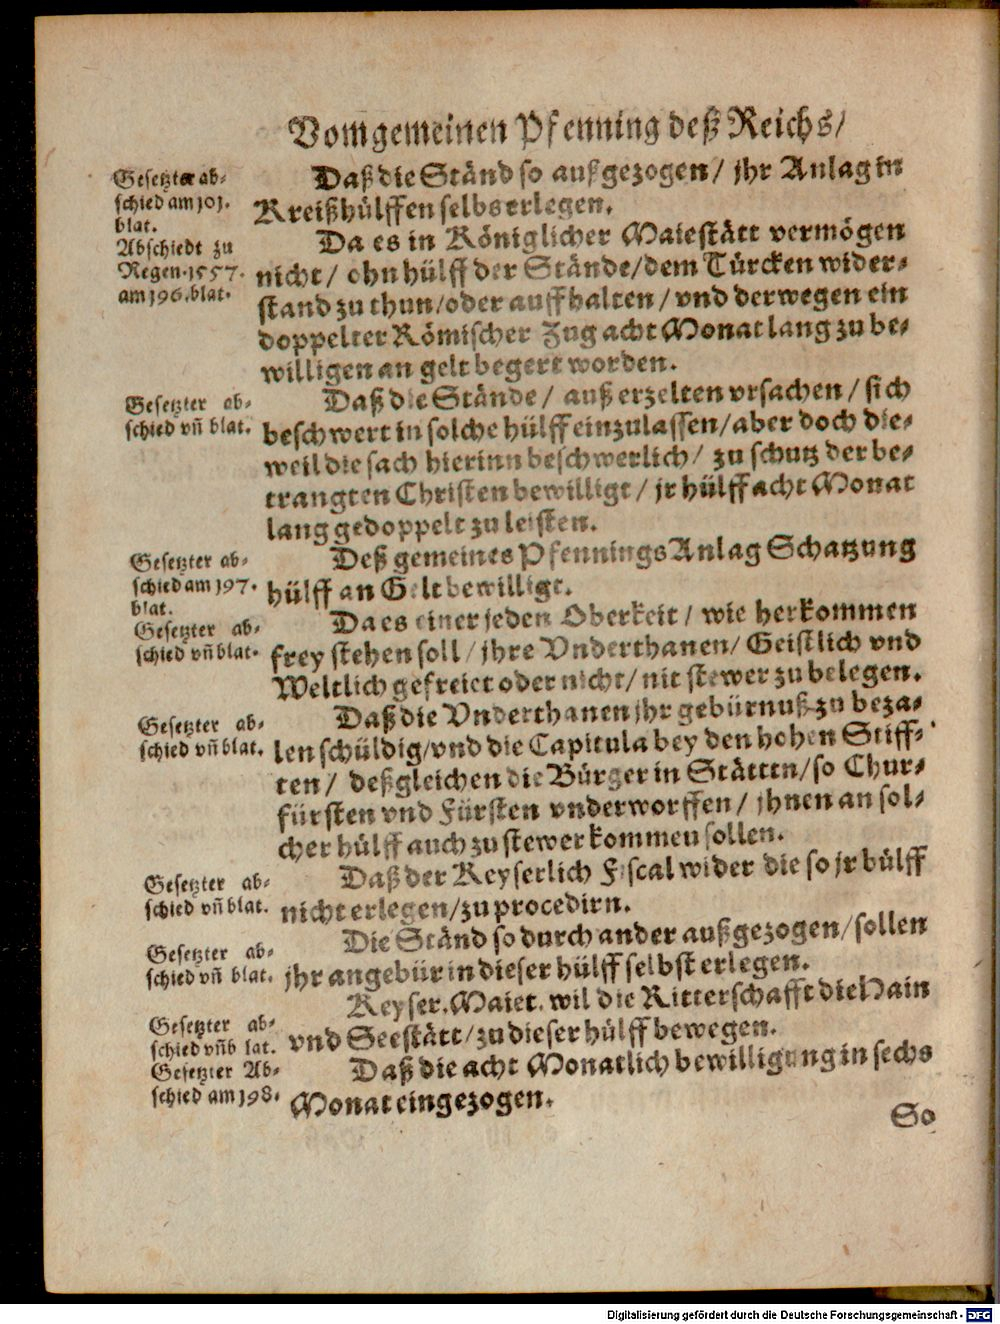 Vom gemeinen Pfenning deß Reichs/
Gesetzter ab-
schied am 101.
blat.
Daß die Ständ so außgezogen / jhr Anlag in
Kreißhülffen selbs erlegen.
Abschiedt zu
Regen. 1557.
am 196. blat.
Da es in Königlicher Maiestätt vermögen
nicht / ohn hülff der Stände/dem Türcken wider-
stand zu thun/oder auffhalten / vnd derwegen ein
doppelter Römischer Zug acht Monat lang zu be-
willigen an gelt begert worden.
Gesetzter ab-
schied vñ blat.
Daß die Stände / auß erzelten vrsachen / sich
beschwert in solche hülff einzulassen/aber doch die-
weil die sach hierinn beschwerlich / zu schutz der be-
trangten Christen bewilligt / jr hülff acht Monat
lang gedoppelt zu leisten.
Gesetzter ab-
schied am 197.
blat.
Deß gemeines Pfennings Anlag Schatzung
hülff an Gelt bewilligt.
Gesetzter ab-
schied vñ blat.
Da es einer jeden Oberkeit / wie herkommen
frey stehen soll / jhre Vnderthanen/ Geistlich vnd
Weltlich gefreiet oder nicht/ mit stewer zu belegen.
Gesetzter ab-
schied vñ blat.
Daß die Vnderthanen jhr gebürnuß zu beza-
len schüldig/vnd die Capitula bey den hohen Stiff-
ten / deßgleichen die Bürger in Stätten/so Chur-
fürsten vnd Fürsten vnderworffen / jhnen an sol-
cher hülff auch zu stewer kommen sollen.
Gesetzter ab-
schied vñ blat.
Daß der Keyserlich Fiscal wider die so jr hülff
nicht erlegen/zu procedirn.
Gesetzter ab-
schied vñ blat.
Die Ständ so durch ander außgezogen/sollen
jhr angebür in dieser hülff selbst erlegen.
Gesetzter ab-
schied vñb lat.
Keyser. Maiet. wil die Ritterschafft die Hain
vnd Seestätt/zu dieser hülff bewegen.
Gesetzter Ab-
schied am 198.
Daß die acht Monatlich bewilligung in sechs
Monat eingezogen.
So
Digitalisierung gefördert durch die Deutsche Forschungsgemeinschaft - DFG